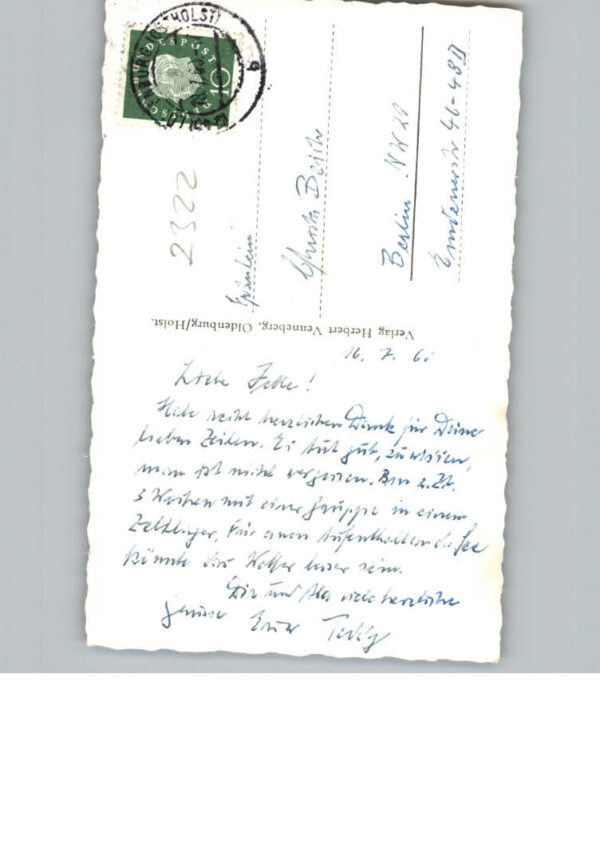 16. 7. 61
Liebe
Habe recht herzlichen Dank für Deine
lieben Zeilen. Es tut gut, zu wissen,
man ist nicht vergessen. Bin z. Zt.
3 Wochen mit einer Gruppe in einem
Zeltlager. Für einen Aufenthalt an der See
könnte das Wetter besser sein.
Dir und viele herzliche
Grüsse Teddy
Verlag Herbert Venneberg, Oldenburg/Holst.
Fräulein
Berlin NW 21
Emdenerstr 46-48
2322
BUNDESPOST
10
(HOLST)